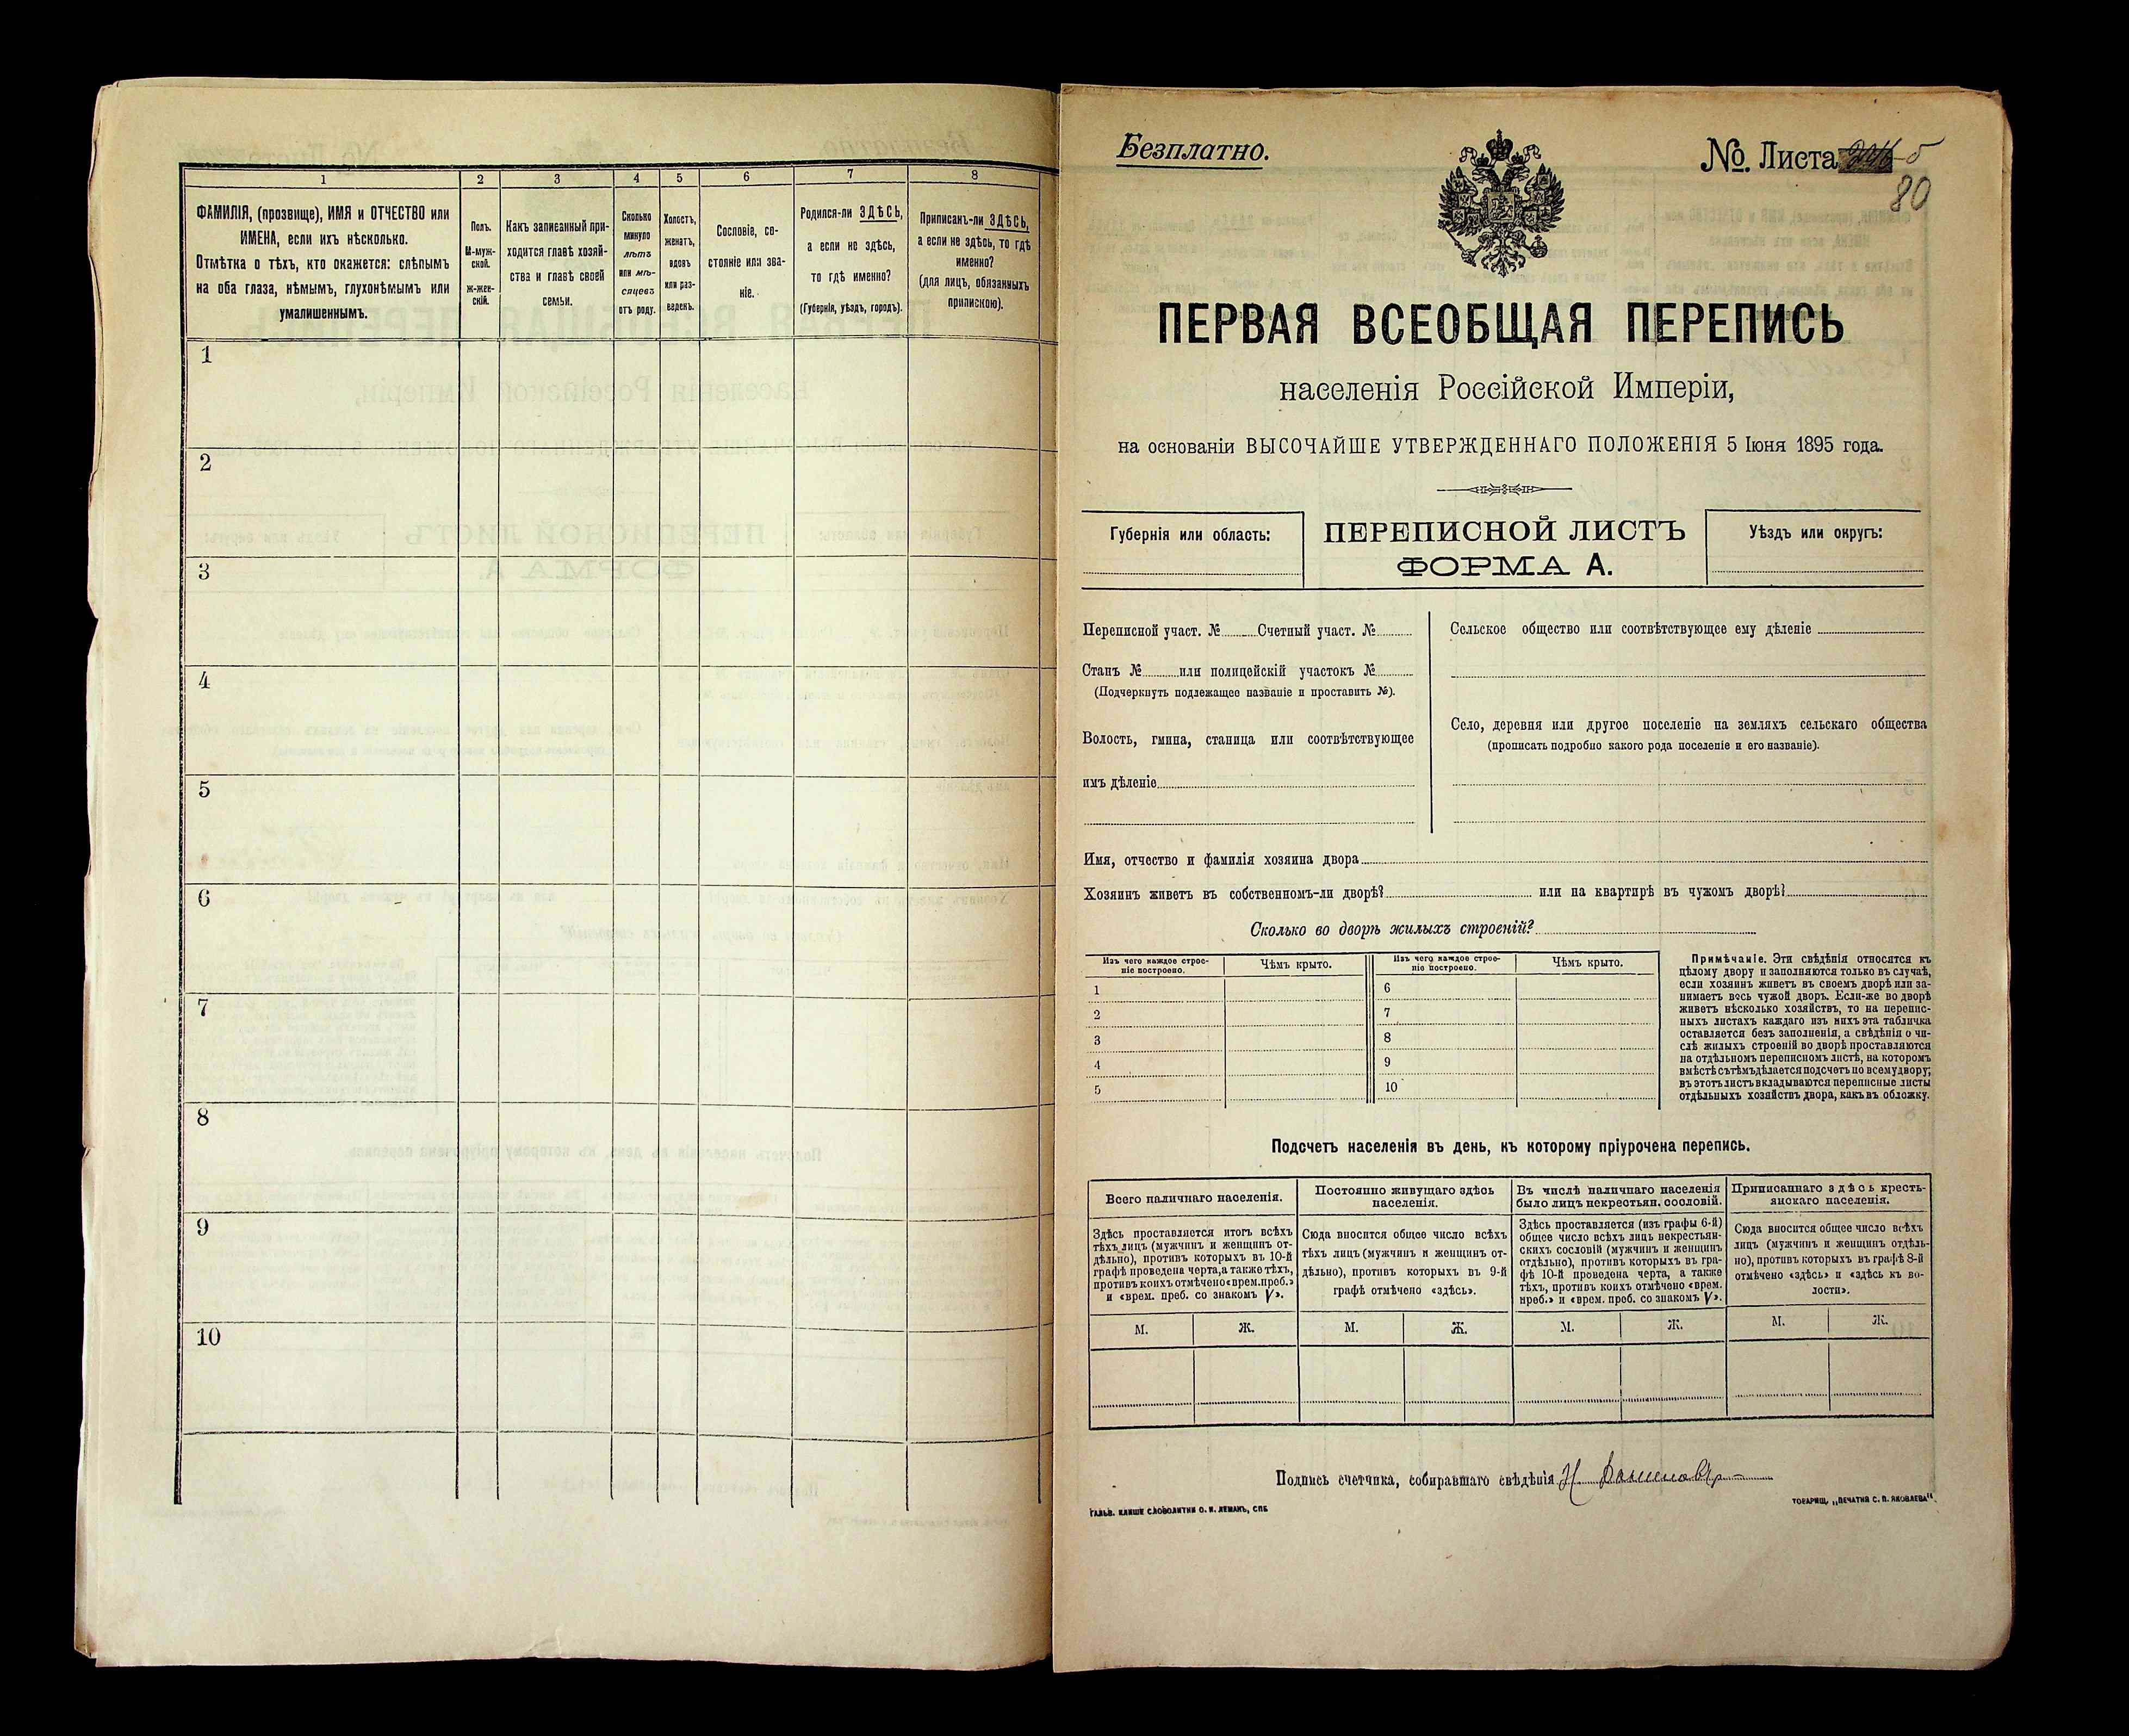 1
2
3
4
5
6
7
8
ФАМИЛІЯ, (прозвище), ИМЯ и ОТЧЕСТВО или
ИМЕНА, если ихъ нѣсколько.
Отмѣтка о тѣхъ, кто окажется: слѣпымъ
на оба глаза, нѣмымъ, глухонѣмымъ или
умалишеннымъ.
Полъ.
М-муж-
ской.
ж-жен-
скій.
Какъ записанный при-
ходится главѣ хозяй-
ства и главѣ своей
семьи.
Сколько
минуло
лѣтъ
или мѣ-
сяцевъ
отъ роду.
Холостъ,
женатъ,
вдовъ
или раз-
веденъ.
Сословіе, со-
стояніе или зва-
ніе.
Родился-ли ЗДѢСЬ,
а если не здѣсь,
то гдѣ именно?
(Губернія, уѣздъ, городъ).
Приписанъ-ли ЗДѢСЬ,
а если не здѣсь, то гдѣ
именно?
(для лицъ, обязанныхъ
припискою).
1
2
3
4
5
6
7
8
9
10
Безплатно.
№. Листа
80
ПЕРВАЯ ВСЕОБЩАЯ ПЕРЕПИСЬ
населенія Россійской Имперіи,
на основаніи ВЫСОЧАЙШЕ УТВЕРЖДЕННАГО ПОЛОЖЕНІЯ 5 Іюня 1895 года.
Губернія или область:
ПЕРЕПИСНОЙ ЛИСТЪ
ФОРМА А.
Уѣздъ или округъ:
Переписной участ. № Счетный участ. №
Станъ № или полицейскій участокъ №
(Подчеркнуть подлежащее названіе и проставить №).
Волость, гмина, станица или соотвѣтствующее
имъ дѣленіе
Сельское общество или соотвѣтствующее ему дѣленіе
Село, деревня или другое поселеніе на земляхъ сельскаго общества
(прописать подробно какого рода поселеніе и его названіе).
Имя, отчество и фамилія хозяина двора
Хозяинъ живетъ въ собственномъ-ли дворѣ? или на квартирѣ въ чужомъ дворѣ?
Сколько во дворѣ жилыхъ строеній?
Изъ чего каждое строе-
ніе построено.
Чѣмъ крыто.
Изъ чего каждое строе-
ніе построено.
Чѣмъ крыто.
1
2
3
4
5
6
7
8
9
10
Примѣчаніе. Эти свѣдѣнія относятся къ
цѣлому двору и заполняются только въ случаѣ,
если хозяинъ живетъ въ своемъ дворѣ или за-
нимаетъ весь чужой дворъ. Если-же во дворѣ
живетъ нѣсколько хозяйствъ, то на перепис-
ныхъ листахъ каждаго изъ нихъ эта табличка
оставляется безъ заполненія, а свѣдѣнія о чи-
слѣ жилыхъ строеній во дворѣ проставляются
на отдѣльномъ переписномъ листѣ, на которомъ
вмѣстѣ съ тѣмъ дѣлается подсчетъ по всему двору;
въ этотъ листъ вкладываются переписные листы
отдѣльныхъ хозяйствъ двора, какъ въ обложку.
Подсчетъ населенія въ день, къ которому пріурочена перепись.
Всего наличнаго населенія.
Здѣсь проставляется итогъ всѣхъ
тѣхъ лицъ (мужчинъ и женщинъ от-
дѣльно), противъ которыхъ въ 10-й
графѣ проведена черта, а также тѣхъ,
противъ коихъ отмѣчено «врем. проб.»
и «врем. преб. со знакомъ V».
Постоянно живущаго здѣсь
населенія.
Сюда вносится общее число всѣхъ
тѣхъ лицъ (мужчинъ и женщинъ от-
дѣльно), противъ которыхъ въ 9-й
графѣ отмѣчено «здѣсь».
Въ числѣ наличнаго населенія
было лицъ некрестьян. сословій.
Здѣсь проставляется (изъ графы 6-й)
общее число всѣхъ лицъ некрестьян-
скихъ сословій (мужчинъ и женщинъ
отдѣльно), противъ которыхъ въ гра-
фѣ 10-й проведена черта, а также
тѣхъ, противъ коихъ отмѣчено «врем.
преб.» и «врем. преб. со знакомъ V».
Приписаннаго здѣсь кресть-
янскаго населенія.
Сюда вносится общее число всѣхъ
лицъ (мужчинъ и женщинъ отдѣль-
но), противъ которыхъ въ графѣ 8-й
отмѣчено «здѣсь» и «здѣсь къ во-
лости».
М. Ж. М. Ж. М. Ж. М. Ж.
Подпись счетчика, собиравшаго свѣдѣнія
ГАЛЬВ. КЛИШЕ СЛОВОЛИТНИ О. И. ЛЕМАНЪ, СПБ
ТОВАРИЩ. „ПЕЧАТНЯ С. П. ЯКОВЛЕВА“.